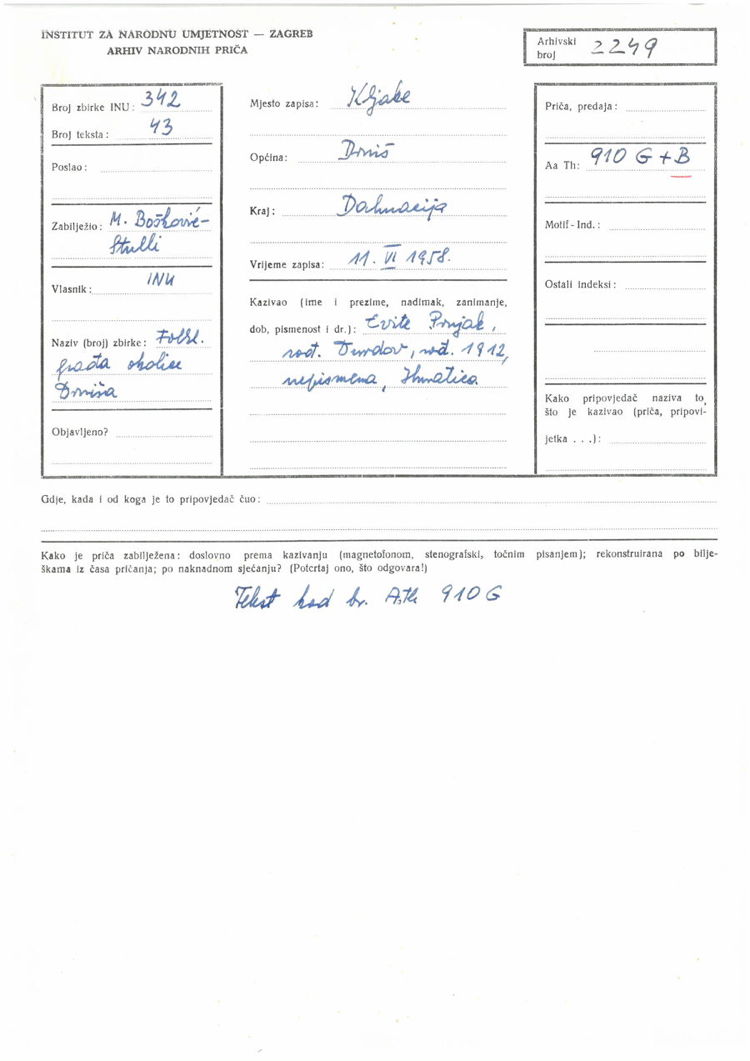 INSTITUT ZA NARODNU UMJETNOST — ZAGREB
ARHIV NARODNIH PRIČA
Arhivski
broj 2249
Broj zbirke INU: 342
Broj teksta: 43
Poslao:
Zabilježio: M. Bošković-
Stulli
Vlasnik: INU
Naziv (broj) zbirke: Folkl.
građa okolice
Drniša
Objavljeno?
Mjesto zapisa: Kljake
Općina: Drniš
Kraj: Dalmacija
Vrijeme zapisa: 11. VI 1958.
Kazivao (ime i prezime, nadimak, zanimanje,
dob, pismenost i dr.): Cvite
rođ. rođ. 1912,
nepismena, Hrvatica
Priča, predaja:
Aa Th: 910 G + B
Motif-Ind.:
Ostali indeksi:
Kako pripovjedač naziva to,
što je kazivao (priča, pripovi-
jetka . . .):
Gdje, kada i od koga je to pripovjedač čuo:
Kako je priča zabilježena: doslovno prema kazivanju (magnetofonom, stenografski, točnim pisanjem); rekonstruirana po bilje-
škama iz časa pričanja; po naknadnom sjećanju? (Potcrtaj ono, što odgovara!)
Tekst kod br. ATh 910 G